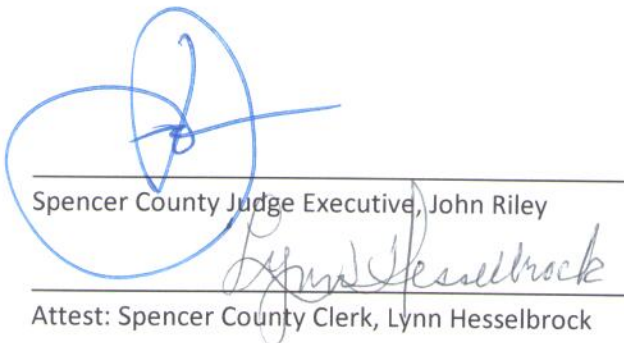 Spencer County Judge Executive, John Riley
Lynn Hesselbrock
Attest: Spencer County Clerk, Lynn Hesselbrock